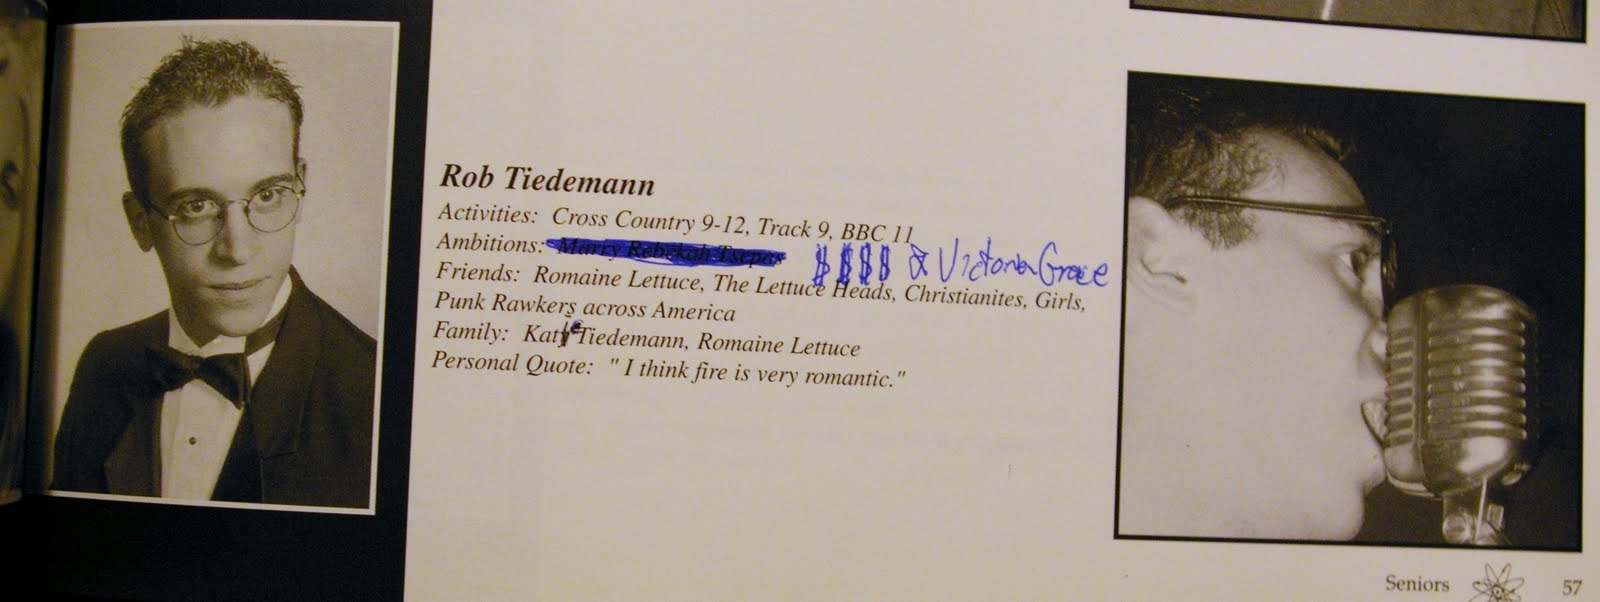 Rob Tiedemann
Activities: Cross Country 9-12, Track 9, BBC 11
Ambitions: Marry Rebekah Tsepas $$$$ & Victoria Grace
Friends: Romaine Lettuce, The Lettuce Heads, Christianites, Girls,
Punk Rawkers across America
Family: Katie Tiedemann, Romaine Lettuce
Personal Quote: " I think fire is very romantic."
Seniors 57